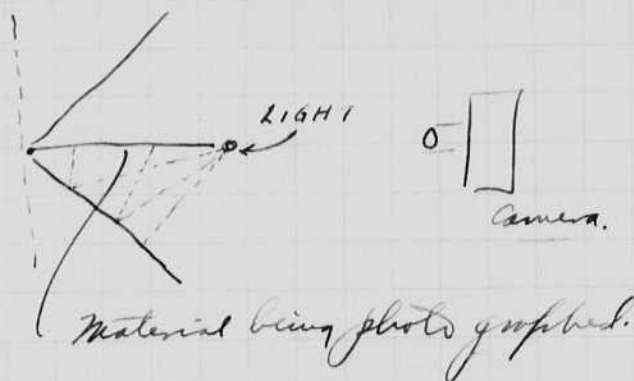 LIGHT
Camera.
Material being photo graphed.